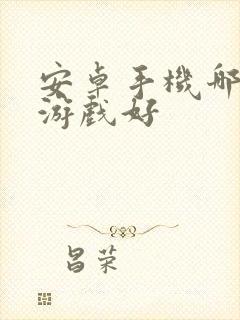 安卓手機哪
游戲好
昌荣